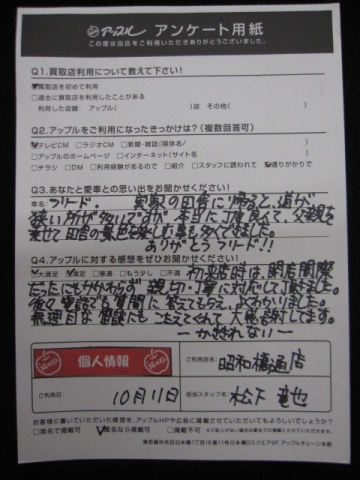 アップル アンケート用紙
この度は当店をご利用いただきありがとうございました。
Q1.買取店利用について教えて下さい!
☑買取店を初めて利用
□過去に買取店を利用したことがある
利用した店舗: アップル( )店 その他( )
Q2.アップルをご利用になったきっかけは?(複数回答可)
☑テレビCM □ラジオCM □新聞・雑誌(媒体名/ )
□アップルのホームページ □インターネット(サイト名 )
□チラシ □DM □利用経験があるので □紹介 □スタッフに誘われて ☑通りがかりで
Q3.あなたと愛車との思い出をお聞かせください!
車名 フリード・ 実家の田舎に帰ると、道が
狭い所が多いですが 本当に丁度良くて、父親を
乗せて田舎の景色を楽しむ事も多くできました。
ありがとうフリード!!
Q4.アップルに対する感想をぜひお聞かせください!
□大満足 ☑満足 □普通 □もう少し □不満 初来店時は、閉店間際
だったにもかかわらず 親切・丁寧に対応して頂けました。
後々電話でも質問に答えてもらえ、よくわかりました。
無理目な相談にもこたえてくれて大変感謝してます。
個人情報
ご利用店名: 昭和橋通店
ご利用日: 10月11日
担当スタッフ名: 松下 竜也
お客様に書いていただいた感想を、アップルHPや広告に掲載させていただいてもよろしいでしょうか?
□実名で掲載可 ☑匿名なら掲載可 □掲載不可
東京都中央区日本橋1丁目16番11号日本橋Dスクエア5F アップルチェーン本部